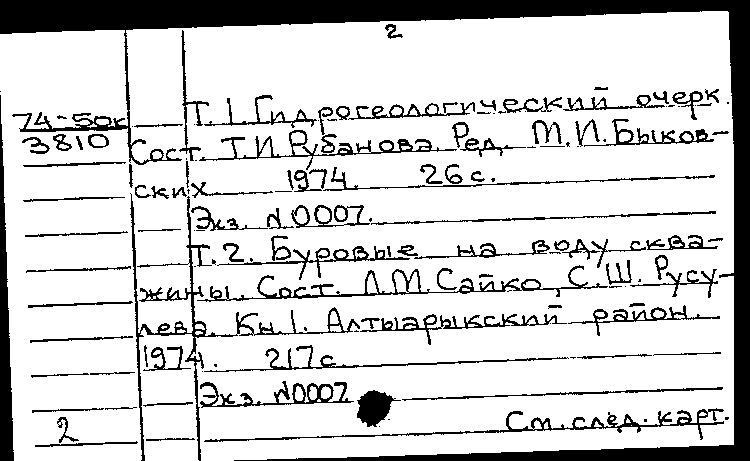 2
Т. 1. Гидрогеологический очерк.
74-50к
3810
Сост. Т.И. Рубанова. Ред. М.И. Быков-
ских 1974. 26 с.
Экз. N0007.
Т. 2. Буровые на воду сква-
жины. Сост. Л.М. Сайко, С.Ш. Русу-
лева. Кн. 1. Алтыарыкский район.
1974. 217 с.
Экз. N0007
2
См. след. карт.